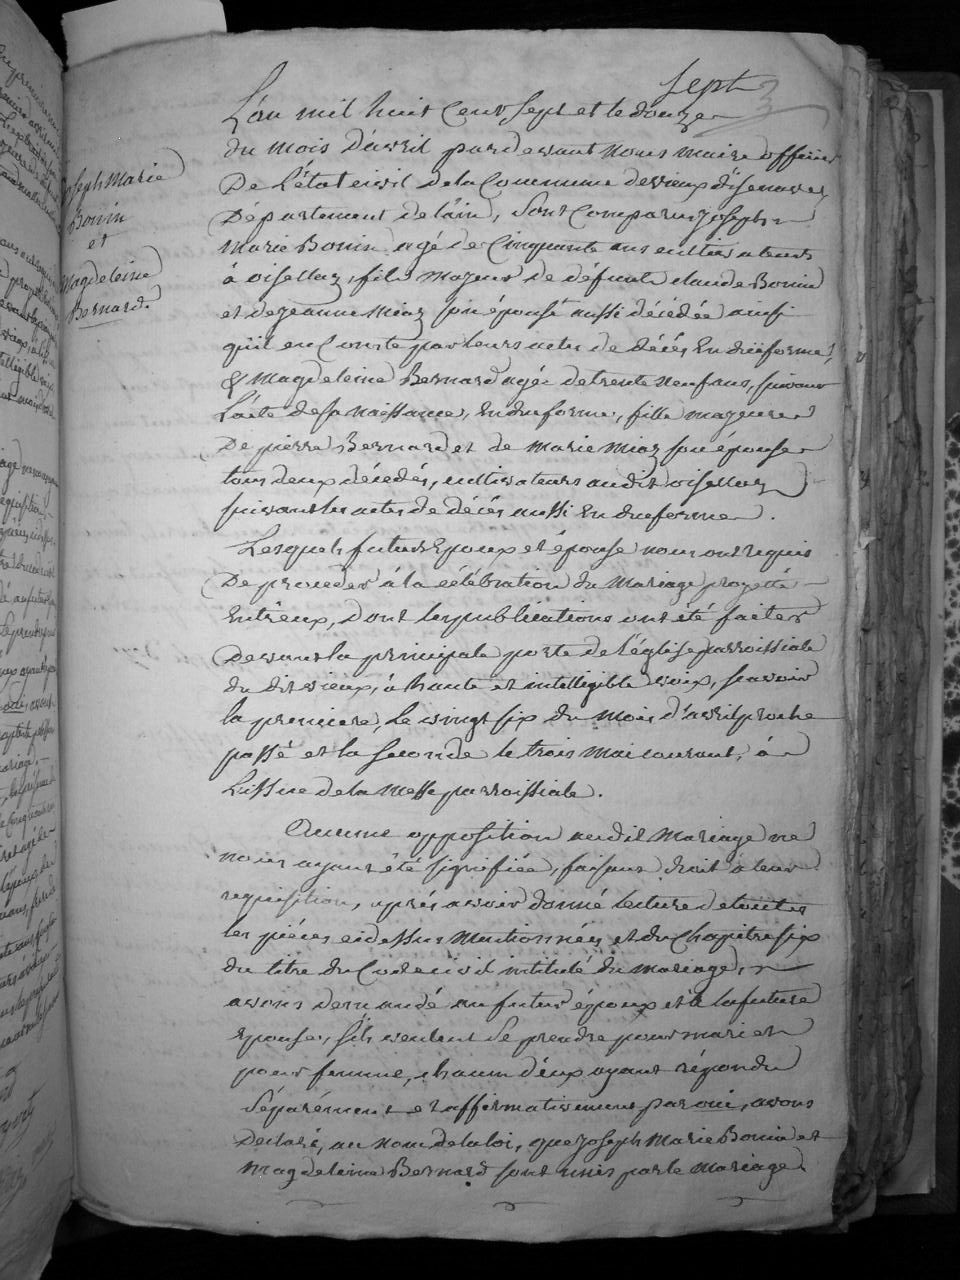 Sept
Joseph Marie
Bonin
et
Magdeleine
Bernard.
L'an mil huit cent sept et le douze
du mois d'avril pardevant nous maire officier
De L'état civil de la Commune de vieux d'isenave,
Département de l'ain, sont Comparus joseph
Marie Bonin agé de Cinquante ans cultivateur
à oisellaz, fils majeur de défunt claude Bonin
et de jeanne Miaz son épouse aussi décédée ainsi
qu'il en Conste par leurs actes de décès En due forme,
& Magdeleine Bernard agée de trente neuf ans, suivant
L'acte de sa naissance, En due forme, fille majeure
De pierre Bernard et de Marie Miaz son épouse
tous deux décédés, cultivateurs audit oisellaz
suivant les actes de décès aussi En due forme.
Lesquels futurs Epoux et épouse nous ont requis
De proceder à la célébration du Mariage projetté
Entr'eux, dont les publications ont été faites
Devant la principale porte de l'église parroissiale
du dit vieux, à haute et intelligible voix, scavoir
la premiere, le vingt six du mois d'avril proche
passé et la seconde le trois mai courant, à
L'issue de la Messe parroissiale.
Aucune opposition audit Mariage ne
nous ayant été signifiée, faisant droit à leur
requisition, après avoir donné lecture de toutes
les pièces cidessus Mentionnées et du Chapitre six
du titre du Code civil intitulé du mariage,
avons demandé au futur époux et à la future
Epouse, s'ils veulent se prendre pour mari et
pour femme, chacun d'eux ayant répondu
séparément et affirmativement par oui, avons
Declaré, au nom de la loi, que joseph Marie Bonin et
Magdeleine Bernard sont unis par le Mariage.